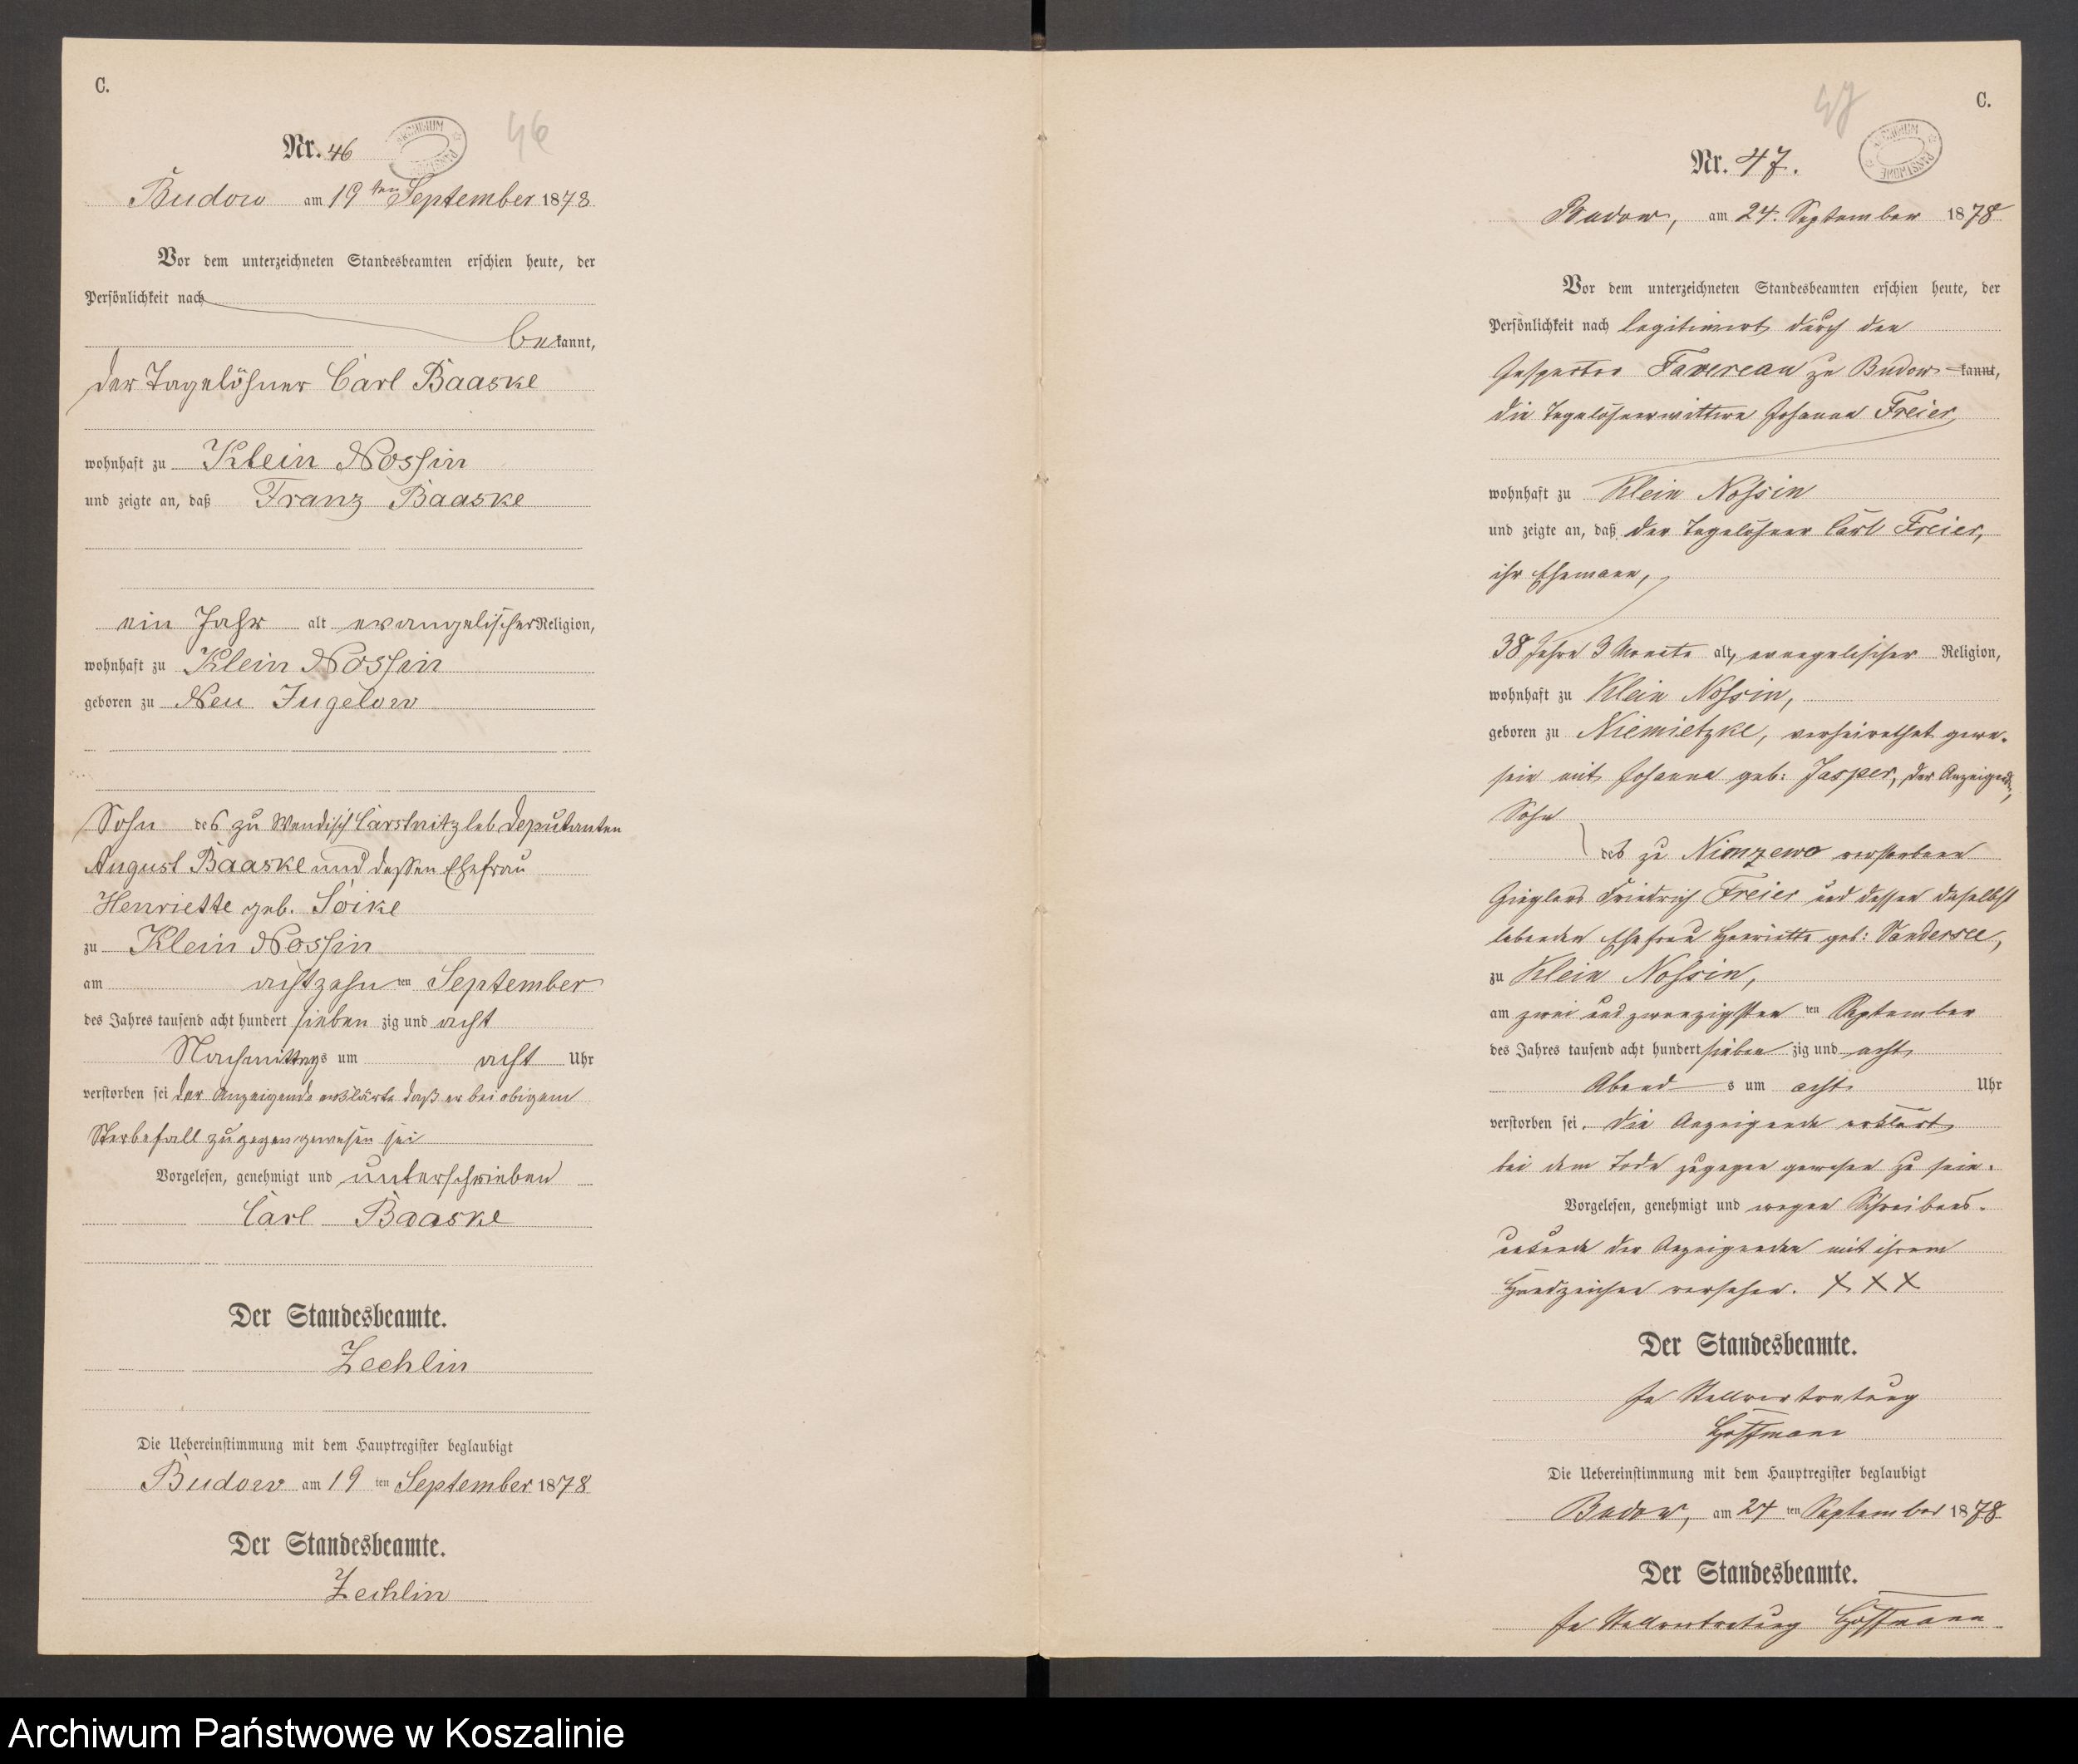 C.
46
Nr. 46
ARCHIWUM PAŃSTWOWE
Budow am 19ten September 1878
Vor dem unterzeichneten Standesbeamten erschien heute, der
Persönlichkeit nach
bekannt,
der Tagelöhner Carl Baaske
wohnhaft zu Klein Nossin
und zeigte an, daß Franz Baaske
ein Jahr alt evangelischer Religion,
wohnhaft zu Klein Nossin
geboren zu Neu Jugelow
Sohn des zu Wendisch Carstnitz leb Deputanten
August Baaske und dessen Ehefrau
Henriette geb.
zu Klein Nossin
am achtzehn ten September
des Jahres tausend acht hundert sieben zig und acht
Nachmittags um acht Uhr
verstorben sei der Anzeigende erklärte daß er bei obigem
Sterbefall zugegen gewesen sei
Vorgelesen, genehmigt und unterschrieben
Carl Baaske
Der Standesbeamte.
Zechlin
Die Uebereinstimmung mit dem Hauptregister beglaubigt
Budow am 19 ten September 1878
Der Standesbeamte.
Zechlin
C.
47
Nr. 47.
ARCHIWUM PAŃSTWOWE
Budow, am 24. September 1878
Vor dem unterzeichneten Standesbeamten erschien heute, der
Persönlichkeit nach legitimirt durch den
Inspector Favereau zu Budow kannt,
die Tagelöhnerwittwe Johanna Freier,
wohnhaft zu Klein Nossin
und zeigte an, daß der Tagelöhner Carl Freier,
ihr Ehemann,
38 Jahre 3 Monate alt, evangelischer Religion,
wohnhaft zu Klein Nossin,
geboren zu Niemietzke, verheirathet gewe-
sein mit Johanna geb: Jasper, der Anzeigenden,
Sohn
des zu Nimzewo verstorbenen
Zieglers Friedrich Freier und dessen daselbst
lebenden Ehefrau Henriette geb: Sandersee,
zu Klein Nossin,
am zwei und zwanzigsten ten September
des Jahres tausend acht hundert sieben zig und acht
Abend s um acht Uhr
verstorben sei. Die Anzeigende erklärt
bei dem Tode zugegen gewesen zu sein.
Vorgelesen, genehmigt und wegen Schreibens-
unkunde der Anzeigenden mit ihrem
Handzeichen versehen. XXX
Der Standesbeamte.
In Stellvertretung
Hoffmann
Die Uebereinstimmung mit dem Hauptregister beglaubigt
Budow, am 24 ten September 1878
Der Standesbeamte.
In Stellvertretung Hoffmann
Archiwum Państwowe w Koszalinie